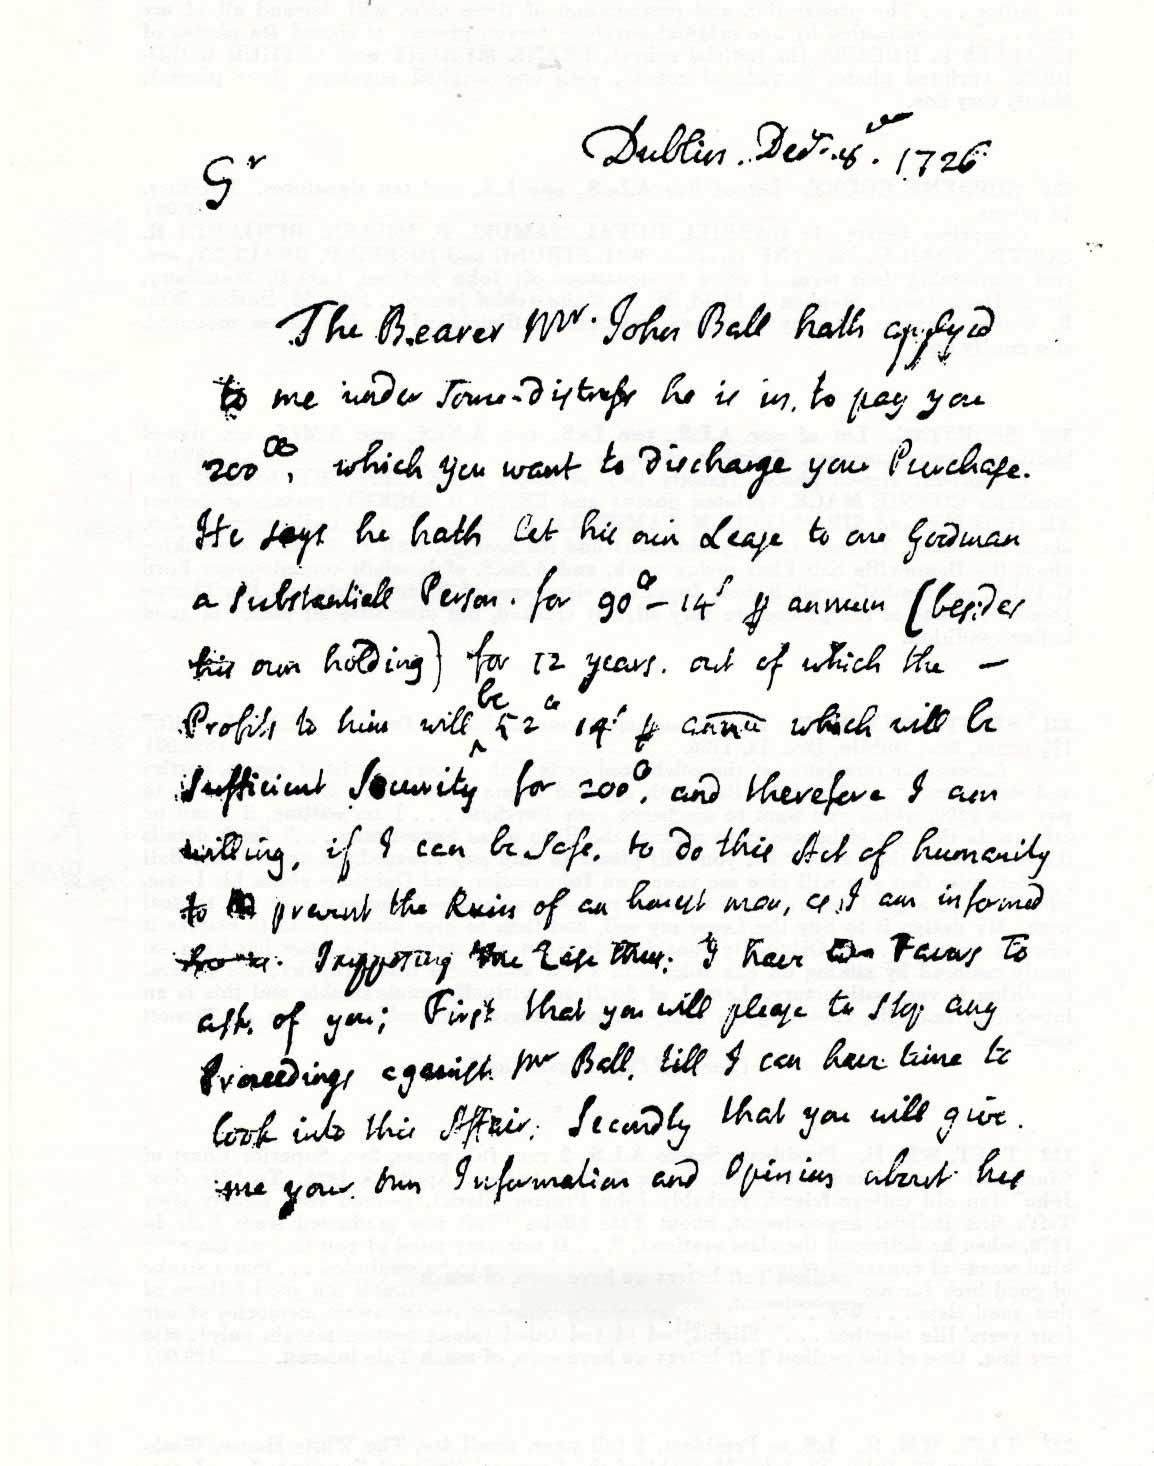 Dublin. Decr. 8th. 1726
Sr
The Bearer Mr. John Ball hath applyed
to me under some distress he is in, to pay you
200ll, which you want to discharge your Purchase.
He says he hath let his own Lease to one Goodman
a substantiall Person. for 90ll-14s p annum (besides
his own holding) for 12 years. out of which the —
Profits to him will be 52ll 14s p annū which will be
sufficient Security for 200ll, and therefore I am
willing, if I can be safe, to do this Act of humanity
to prevent the Ruin of an honest man, as I am informed
Supposing the Case thus; I have two Favors to
ask of you; First that you will please to stop any
Proceedings against Mr Ball, till I can have time to
look into this Affair; Secondly that you will give
me your own Information and Opinion about his